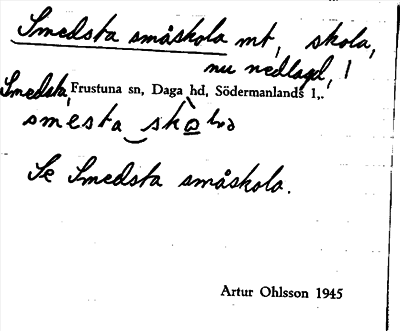 Smedsta småskola mt, skola,
nu nedlagd, !
Smedsta, Frustuna sn, Daga hd, Södermanlands l.
smesta
Se Smedsta småskola.
Artur Ohlsson 1945